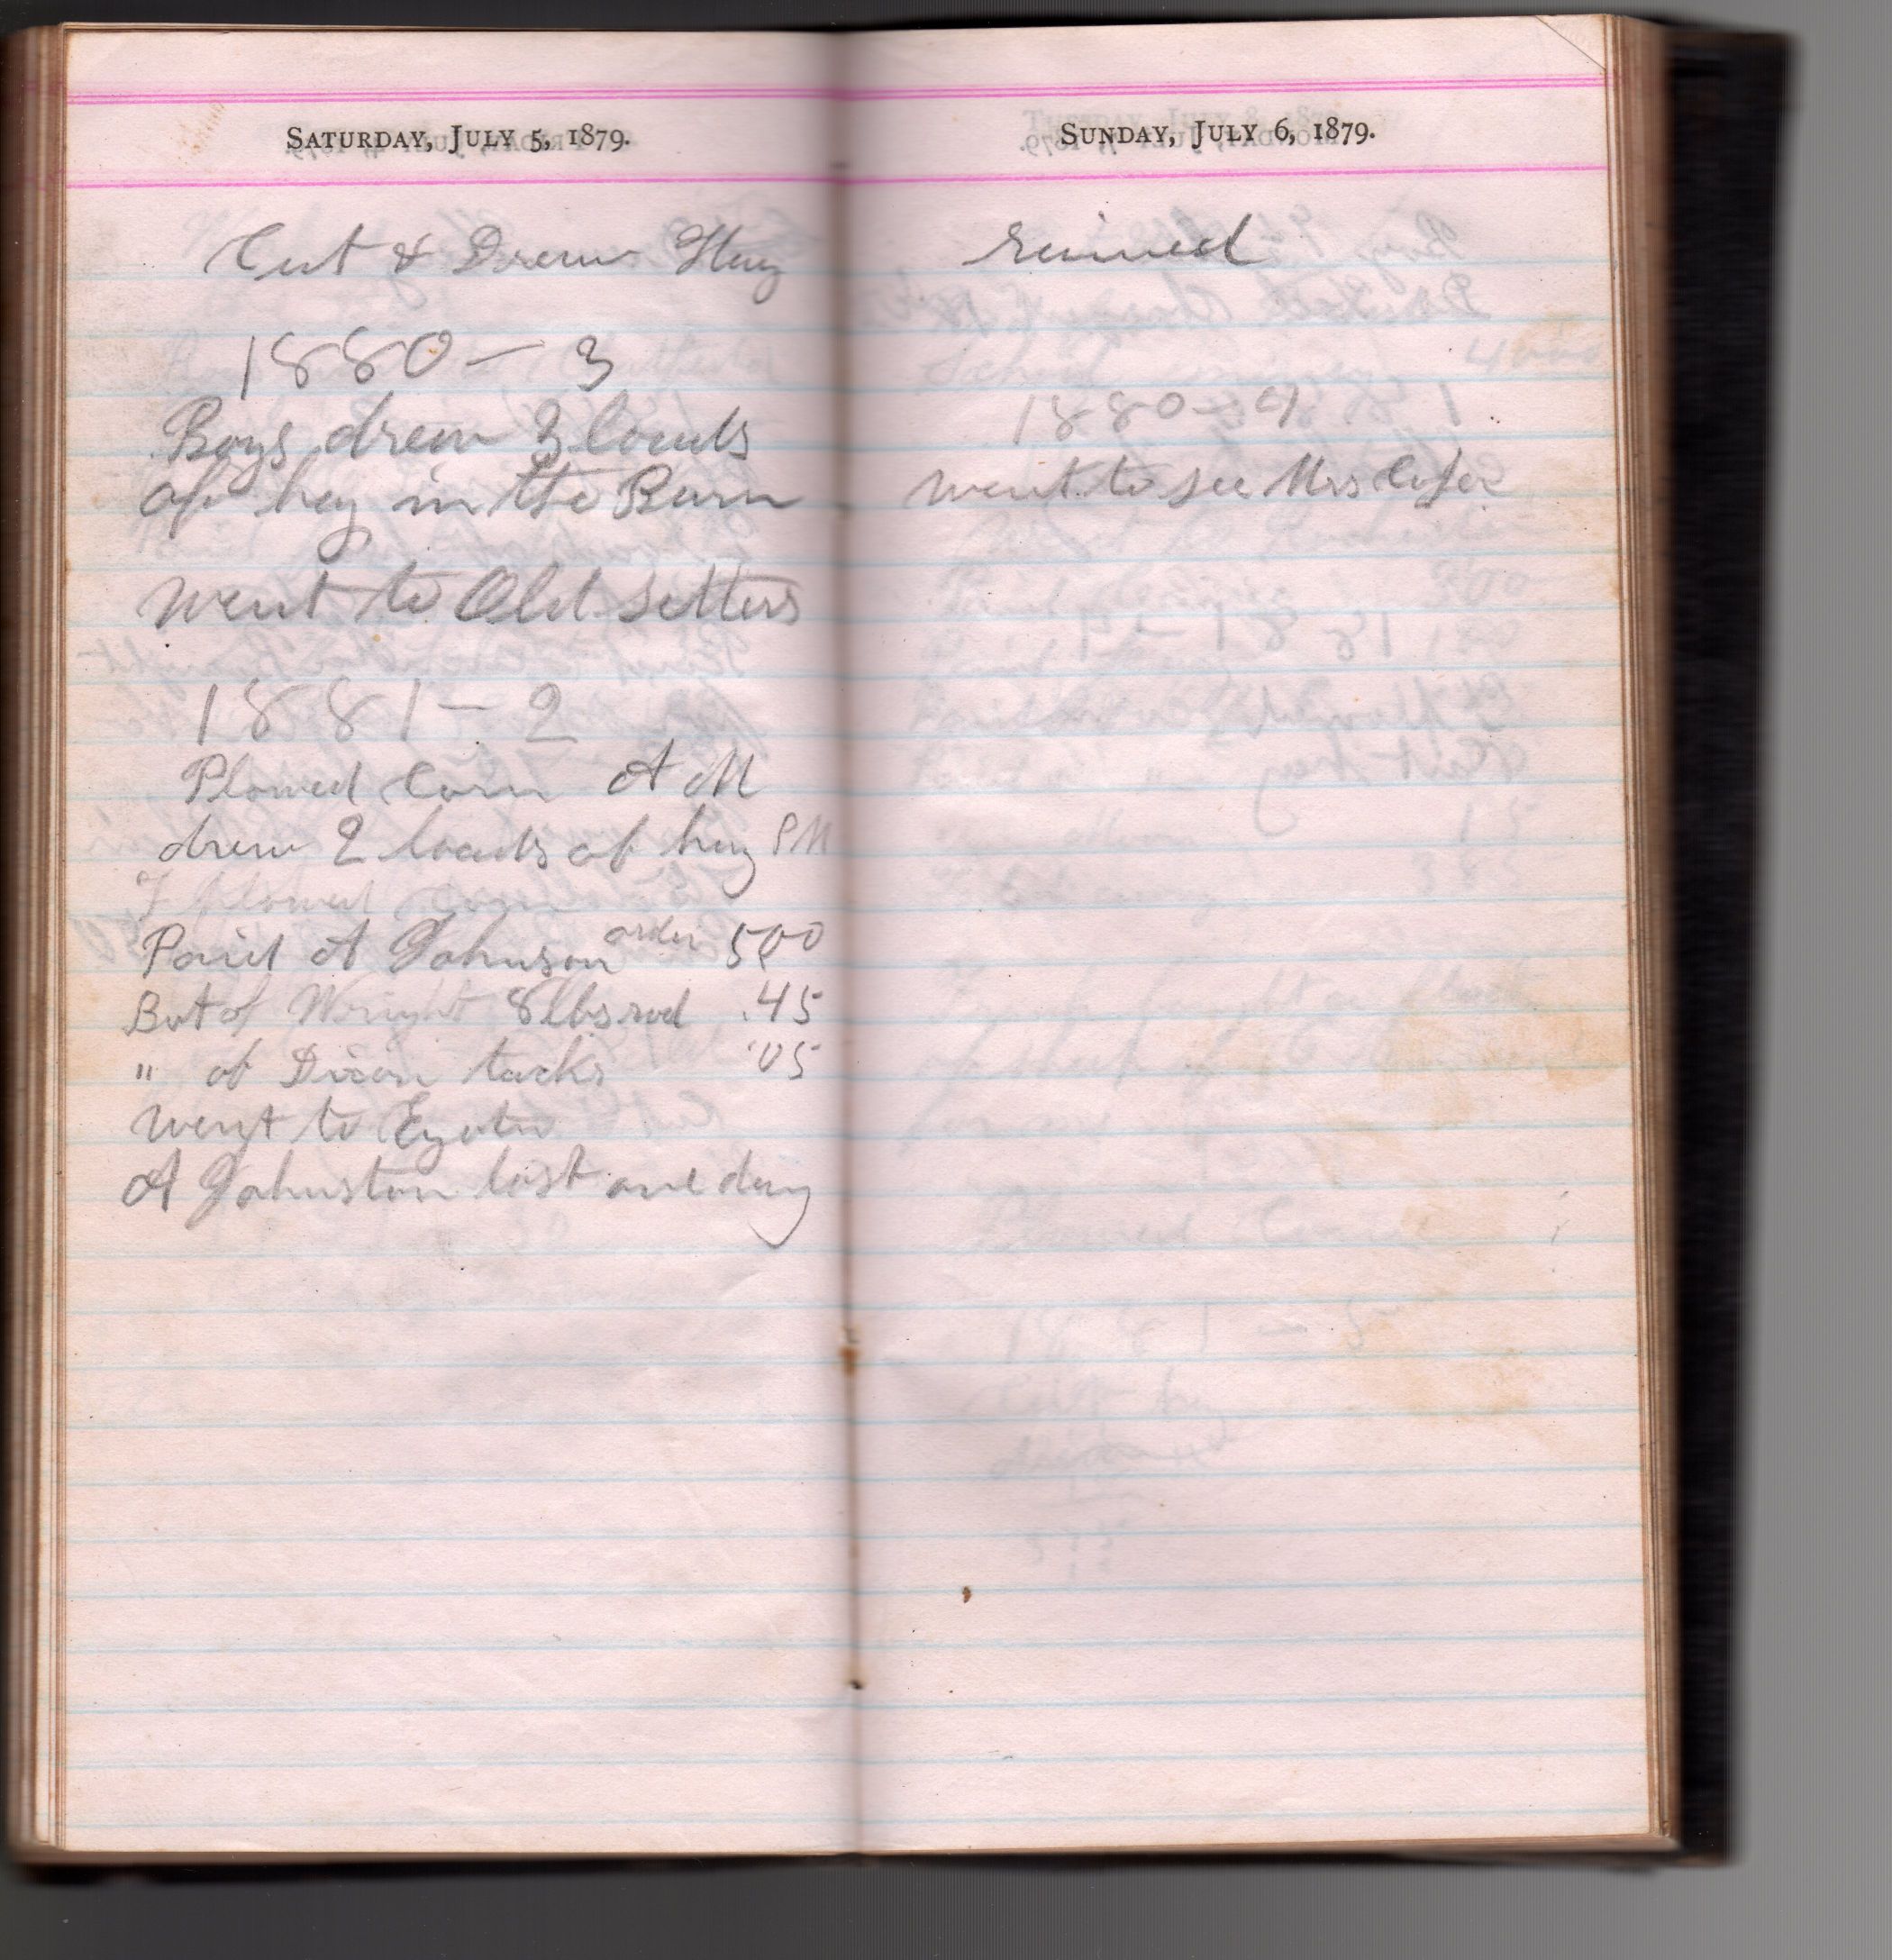 SATURDAY, JULY 5, 1879.
Cut & Drew Hay
1880 — 3
Boys drew 3 loads
of hay in the Barn
went to Old Setters
1881 — 2
Plowed Corn A M
drew 2 loads of hay PM
I plowed Corn
Paid A Johnson order 500
Bot of Wright 8 lbs rod .45
" of Dixon tacks .05
Went to Eyota
A Johnston lost one day
SUNDAY, JULY 6, 1879.
rained
1880 - 4
went to see Mrs